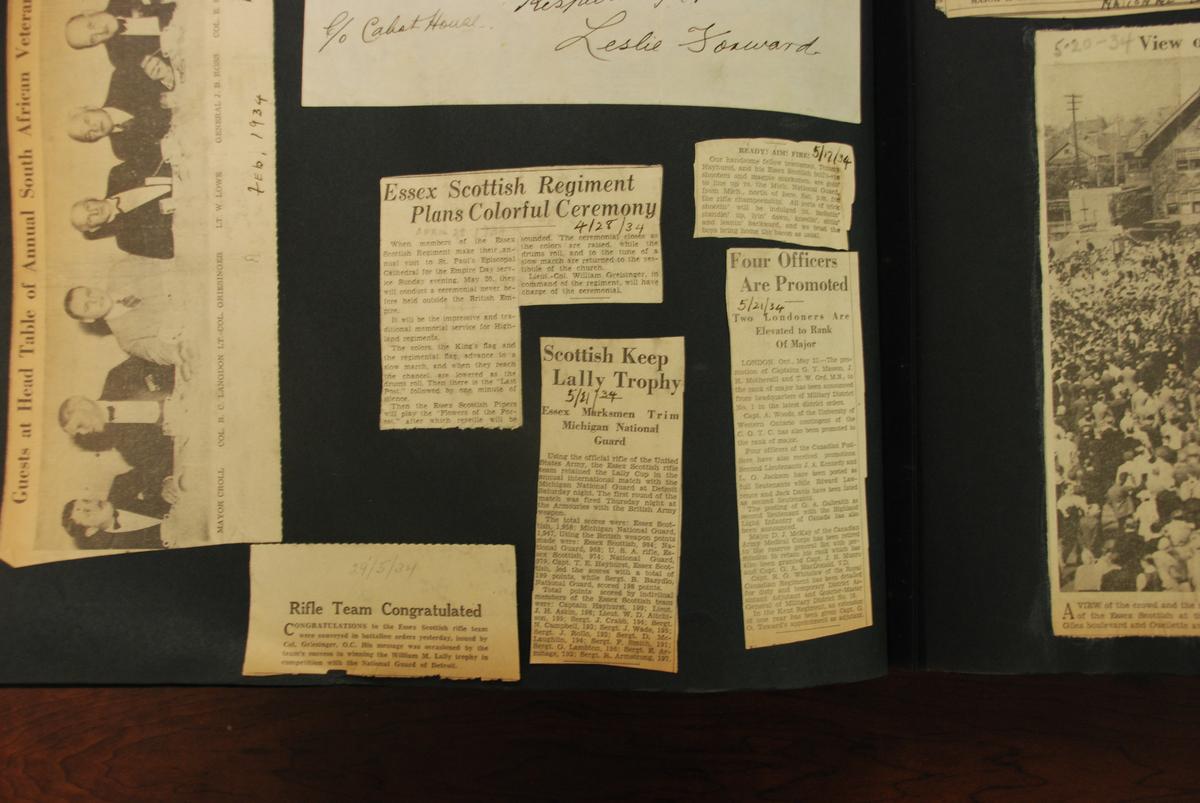 Guests at Head Table of Annual South African Veteran
MAYOR CROLL COL. E. C. LANGDON LT.-COL. GRIESINGER LT. W. LOWE GENERAL J. B. ROSS COL. E. S.
Feb, 1934
c/o Cabot House.
Leslie Forward.
Essex Scottish Regiment
Plans Colorful Ceremony
4/28/34
When members of the Essex
Scottish Regiment make their annual
visit to St. Paul's Episcopal
Cathedral for the Empire Day service
Sunday evening, May 20, they
will conduct a ceremonial never before
held outside the British Empire.
It will be the impressive and traditional
memorial service for Highland
regiments.
The colors, the King's flag and
the regimental flag, advance to a
slow march, and when they reach
the chancel, are lowered as the
drums roll. Then there is the "Last
Post," followed by one minute of
silence.
Then the Essex Scottish Pipers
will play the "Flowers of the Forest,"
after which reveille will be
sounded. The ceremonial closes as
the colors are raised, while the
drums roll, and to the tune of a
slow march are returned to the vestibule
of the church.
Lieut.-Col. William Greisinger, in
command of the regiment, will have
charge of the ceremonial.
READY! AIM! FIRE!
5/17/34
Our handsome fellow townsman,
Hayhurst, and his Essex Scottish
shooters and magpie marksmen, are
to line up vs. the Mich. National Guard,
from Mich., north of here, Sat. p.m. for
the rifle championship. All sorts of trick
shootin' will be indulged in,
standin' up, lyin' down, kneelin',
and leanin' backward, and we trust the
boys bring home the bacon as usual.
Four Officers
Are Promoted
5/21/34
Two Londoners Are
Elevated to Rank
Of Major
LONDON, Ont., May 21.—The promotion
of Captains G. Y. Masson, J.
H. Mothersill and T. W. Ord, M.M., to
the rank of major has been announced
from headquarters of Military District
No. 1 in the latest district orders.
Capt. A. Woods, of the University of
Western Ontario contingent of the
C. O. T. C. has also been promoted to
the rank of major.
Four officers of the Canadian Fusiliers
have also received promotions.
Second Lieutenants J. A. Kennedy and
L. O. Jackson have been posted as
full lieutenants while Edward Lawrence
and Jack Davis have been listed
as second lieutenants.
The posting of G. A. Galbraith as
second lieutenant with the Highland
Light Infantry of Canada has also
been announced.
Major D. J. McKay of the Canadian
Army Medical Corps has been retired
to the reserve
mission to retain his rank which has
also been granted Capt. J. H. Munro
and Capt. G. A. MacDonald, V.D.
Capt. R. G. Whitelaw of the Royal
Canadian Regiment has been detailed
for duty and temporary District Assistant
Adjutant and Quarter-Master
General of Military District No. 10.
In the Kent Regiment, an extension
of one year has been given Capt. G.
O. Toward's appointment as adjutant.
Scottish Keep
Lally Trophy
5/21/34
Essex Marksmen Trim
Michigan National
Guard
Using the official rifle of the United
States Army, the Essex Scottish rifle
team retained the Lally Cup in the
annual international match with the
Michigan National Guard at Detroit
Saturday night. The first round of the
match was fired Thursday night at
the Armouries with the British Army
weapon.
The total scores were: Essex Scottish,
1,958; Michigan National Guard,
1,947. Using the British weapon points
made were: Essex Scottish, 984; National
Guard, 968; U. S. A. rifle, Essex
Scottish, 974; National Guard,
979. Capt. T. E. Hayhurst, Essex Scottish,
led the scores with a total of
199 points, while Sergt. B. Bazydlo,
National Guard, scored 198 points.
Total points scored by individual
members of the Essex Scottish team
were: Captain Hayhurst, 199; Lieut.
J. H. Askin, 198; Lieut. W. D. Aitchison,
195; Sergt. J. Crabb, 196; Sergt.
N. Campbell, 193; Sergt. J. Wade, 195;
Sergt. J. Rollo, 193; Sergt. D. McLaughlin,
194; Sergt. F. Smith, 191;
Sergt. G. Lambton, 196; Sergt. E. Armitage,
192; Sergt. R. Armstrong, 197.
29/5/34
Rifle Team Congratulated
CONGRATULATIONS to the Essex Scottish rifle team
were conveyed in battalion orders yesterday, issued by
Col. Griesinger, O.C. His message was occasioned by the
team's success in winning the William M. Lally trophy in
competition with the National Guard of Detroit.
5-20-34 View o
A VIEW of the crowd and the
of the Essex Scottish at
Giles boulevard and Ouellette